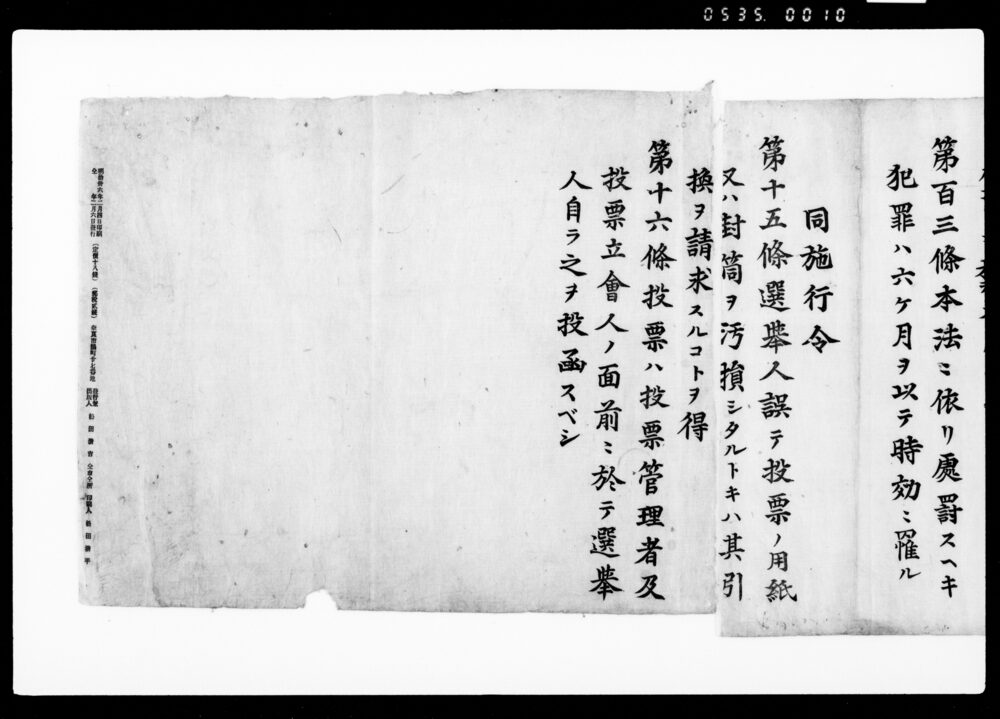 0535. 0010
第百三條本法ニ依リ處罰スヘキ
犯罪ハ六ケ月ヲ以テ時効ニ罹ル
同施行令
第十五條選擧人誤テ投票ノ用紙
又ハ封筒ヲ汚損シタルトキハ其引
換ヲ請求スルコトヲ得
第十六條投票ハ投票管理者及
投票立會人ノ面前ニ於テ選擧
人自ラ之ヲ投函スベシ
明治卅六年二月四日印刷
仝 年二月六日發行
(定價十八錢)
(郵税貳錢)